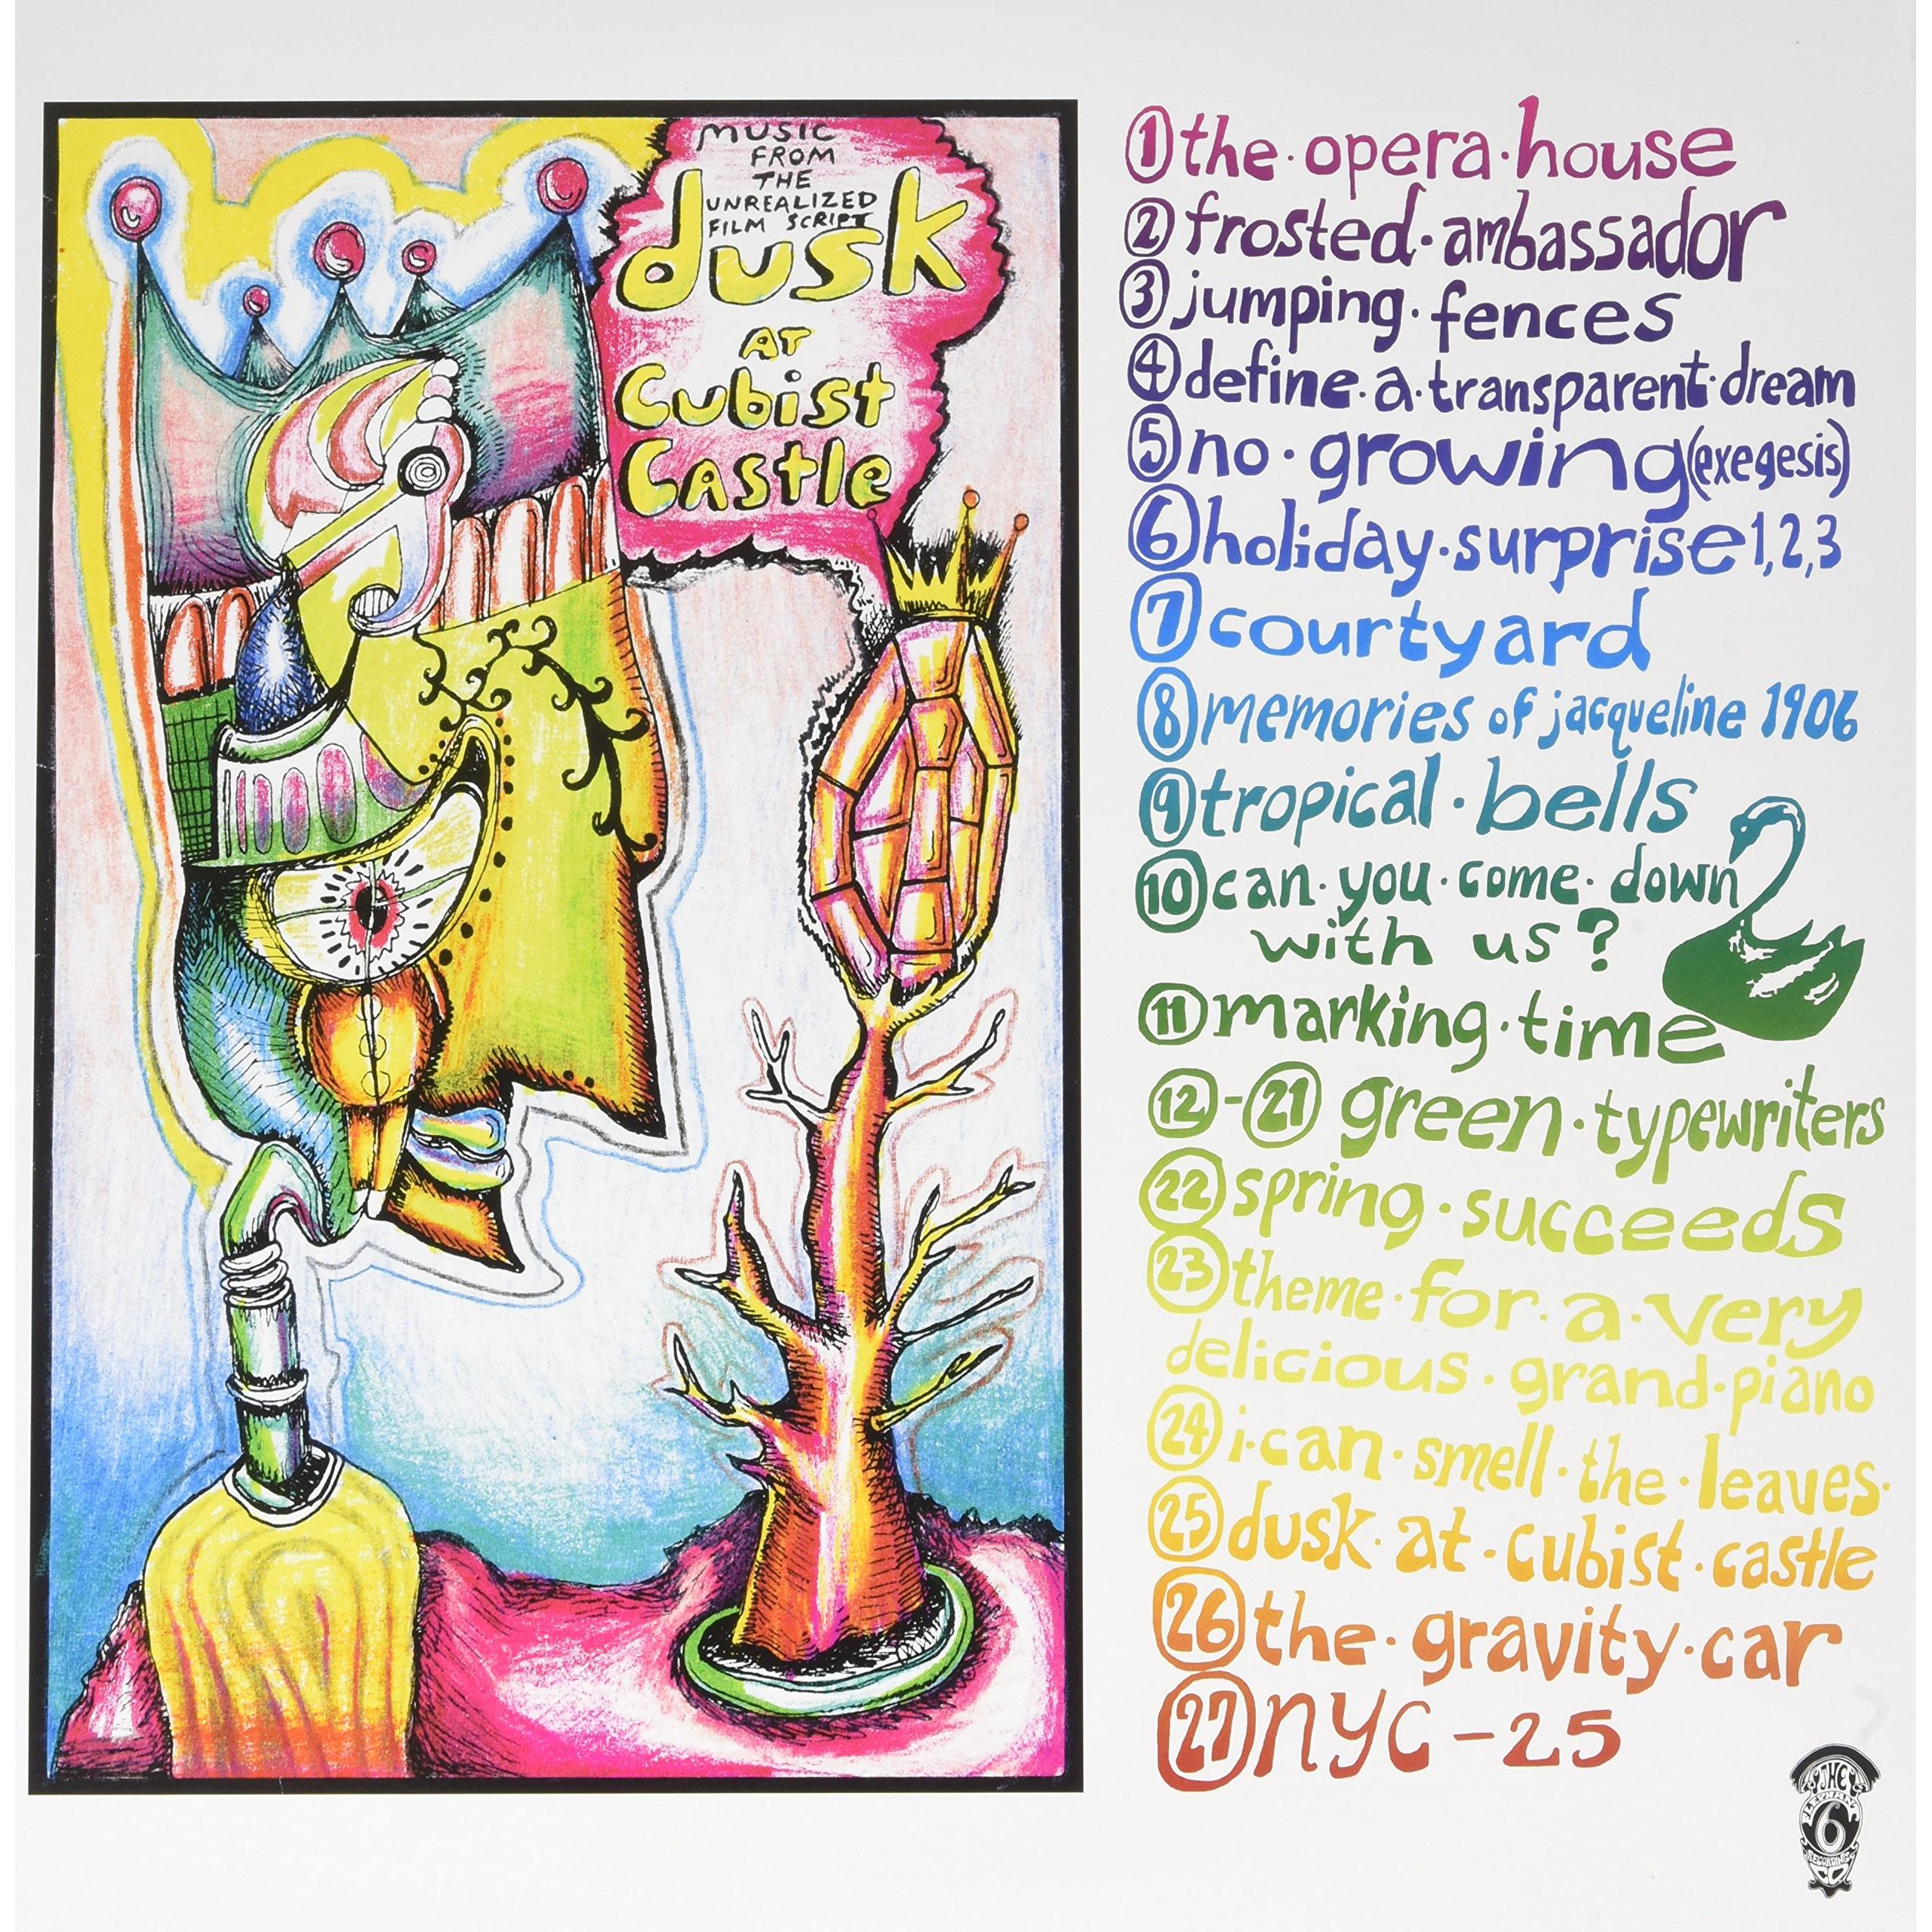 MUSIC
FROM
THE
UNREALIZED
FILM SCRIPT
dusk
AT
Cubist
Castle
1 the·opera·house
2 frosted·ambassador
3 jumping·fences
4 define·a·transparent·dream
5 no·growing(exegesis)
6 holiday·surprise 1,2,3
7 courtyard
8 memories of jacqueline 1906
9 tropical·bells
10 can·you·come·down
with us?
11 marking·time
12-21 green·typewriters
22 spring·succeeds
23 theme·for·a·very
delicious·grand·piano
24 i·can·smell·the·leaves·
25 dusk·at·cubist·castle
26 the·gravity·car
27 nyc-25
THE
ELEPHANT
6
RECORDING
CO.